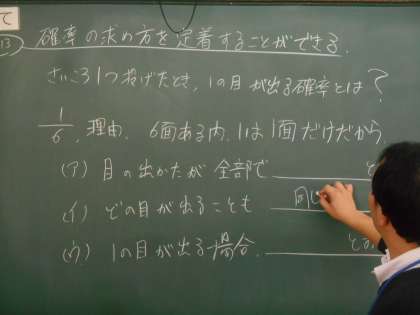 て
13 確率の求め方を定着することができる.
さいころ1つ投げたとき, 1の目が出る確率とは?
1/6, 理由. 6面ある内, 1は1面だけだから
(ア) 目の出かたが全部で
(イ) どの目が出ることも 同じ
(ウ) 1の目が出る場合.